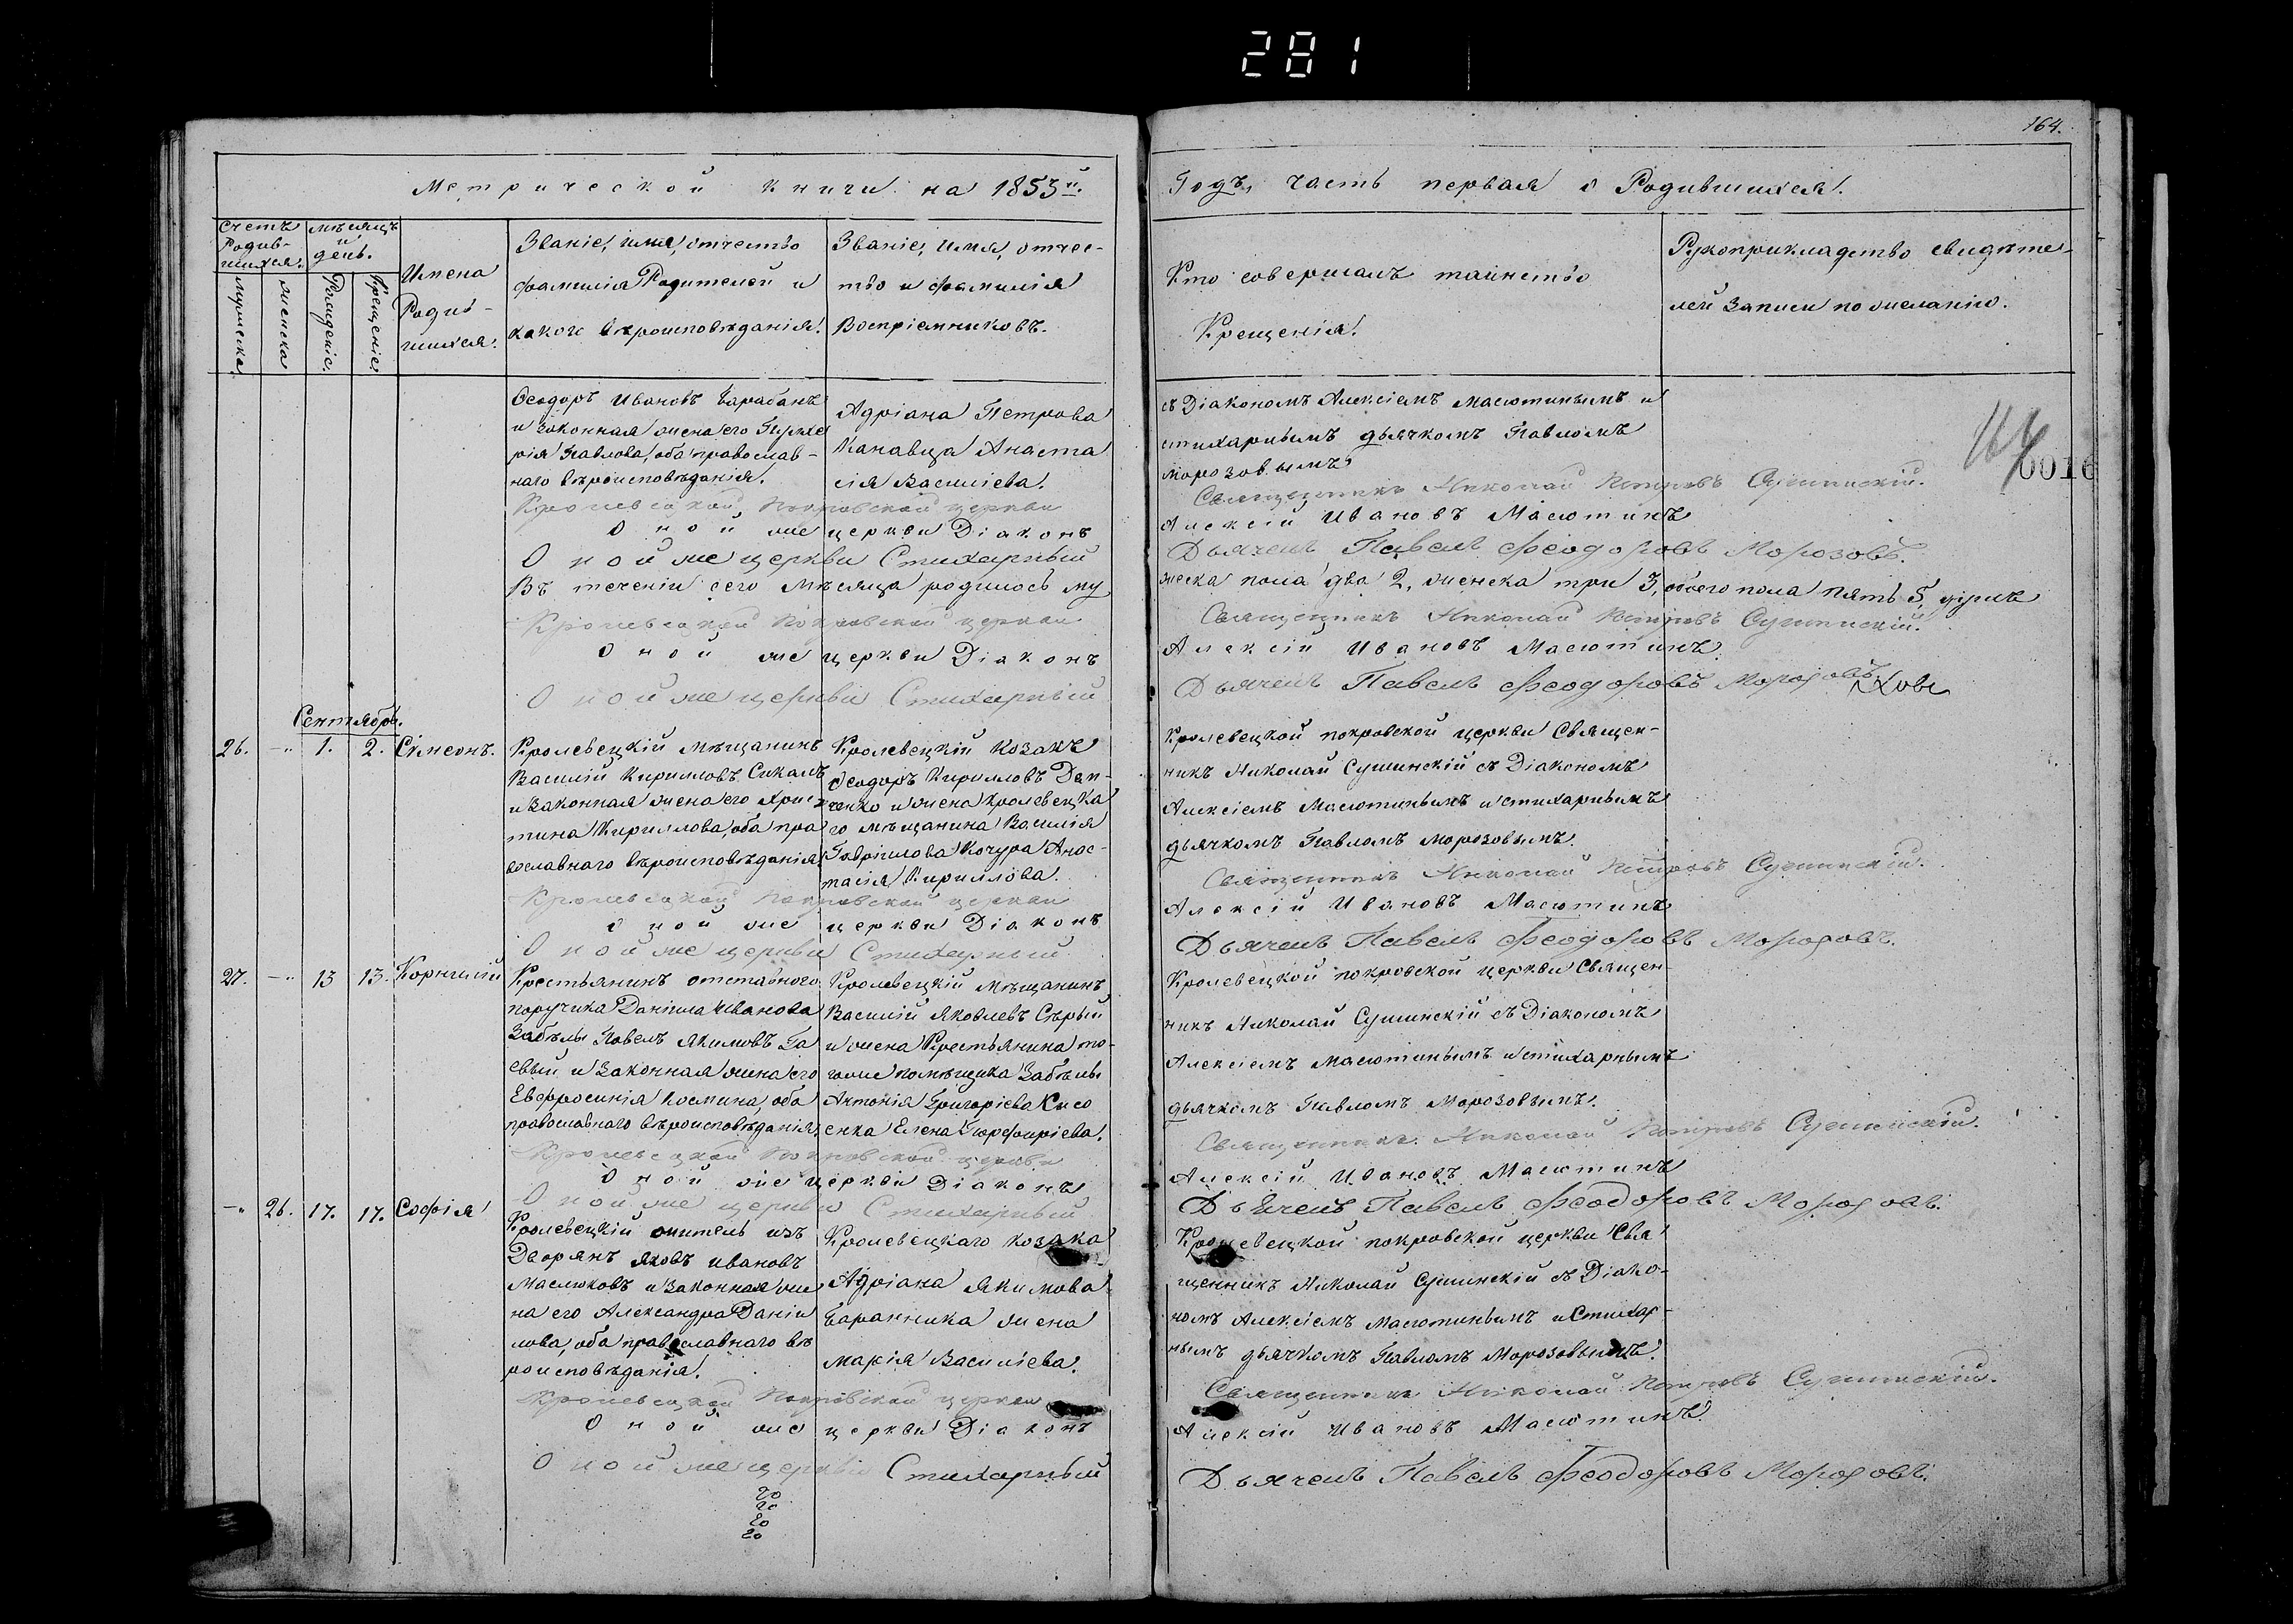 281
164.
Метрической книги на 1853й.
Годъ, часть первая о Родившихся.
Счетъ Родив-шихся.
мужеска
женска
мѣсяцъ и день.
Рожденіе.
Крещеніе.
Имена Родив-шихся.
Званіе, имя, отчество
фамилія Родителей и
какого вѣроисповѣданія.
Званіе, имя, отчес-
тво и фамилія
Воспріемниковъ.
Кто совершалъ таинство
Крещенія.
Рукоприкладство свидѣте-
лей Записи по желанію.
Ѳеодоръ Ивановъ Барабанъ
и законная жена его
рія Павлова, оба православ-
наго вѣроисповѣданія.
Адріана Петрова
Канавца Анаста
сія Василіева.
съ Діакономъ Алексіемъ Масютинымъ и
стихарнымъ дьячкомъ Павломъ
морозовымъ
0016
Кролевецкой Покровской церкви Священникъ Николай Петровъ Сушинскій.
Оной же церкви Діаконъ Алексій Ивановъ Масютинъ
Оной же церкви Стихарный Дьячекъ Павелъ Феодоровъ Морозовъ.
Въ теченіи сего мѣсяца родилось му жеска пола два 2, женска три 3, обоего пола пять 5, душъ
Кролевецкой Покровской церкви Священникъ Николай Петровъ Сушинскій.
Оной же церкви Діаконъ Алексій Ивановъ Масютинъ.
Оной же церкви Стихарный Дьячекъ Павелъ Феодоровъ Морозовъ
Сентябрь.
26. -" 1. 2. Сѵмеонъ.
Кролевецкій мѣщанинъ
Василій Кирилловъ Сикалъ
и Законная жена его Хрис
тина Кириллова, оба пра
вославнаго вѣроисповѣданія.
Кролевецкій Козакъ
Ѳеодоръ Кирилловъ Дем-
ченко и жена Кролевецка
го мѣщанина Василія
Гавріилова Кочура Анас-
тасія Кириллова.
Кролевецкой покровской церкви Священ-
никъ Николай Сушинскій съ Діакономъ
Алексіемъ Масютинымъ и стихарнымъ
дьячкомъ Павломъ морозовымъ.
Кролевецкой Покровской церкви Священникъ Николай Петровъ Сушинскій.
Оной же церкви Діаконъ Алексій Ивановъ Масютинъ
Оной же церкви Стихарный Дьячекъ Павелъ Феодоровъ Морозовъ.
27. -" 13 13. Корнилій
Крестьянинъ отставного
поручика Даніила Иванова
Забѣлы Павелъ Якимовъ Га
евый и Законная жена его
Евфросинія Космина, оба
православнаго вѣроисповѣданія.
Кролевецкій мѣщанинъ
Василій Яковлевъ Сѣрый
и жена Крестьянина то-
гоже помѣщика Забѣлы
Антонія Григоріева Кисо
енка Елена Порфиріева.
Кролевецкой покровской церкви Священ-
никъ Николай Сушинскій съ Діакономъ
Алексіемъ масютинымъ и стихарнымъ
дьячкомъ Павломъ Морозовымъ.
Кролевецкой Покровской церкви Священникъ Николай Петровъ Сушинскій.
Оной же церкви Діаконъ Алексій Ивановъ Масютинъ
Оной же церкви Стихарный Дьячекъ Павелъ Феодоровъ Морозовъ.
-" 26. 17. 17. Софія
Кролевецкій житель изъ
Дворянъ Яковъ ивановъ
Маслюковъ и Законная же
на его Александра Даніи
лова, оба православнаго вѣ
роисповѣданія.
Кролевецкаго козака
Адріана Якимова
Баранника жена
марія Василіева.
Кролевецкой покровской церкви Свя
щенникъ Николай Сушинскій съ Діако-
номъ Алексіемъ Масютинымъ и Стихар-
нымъ дьячкомъ Павломъ Морозовымъ.
Кролевецкой Покровской церкви Священникъ Николай Петровъ Сушинскій.
Оной же церкви Діаконъ Алексій Ивановъ Масютинъ.
Оной же церкви Стихарный Дьячекъ Павелъ Феодоровъ Морозовъ.